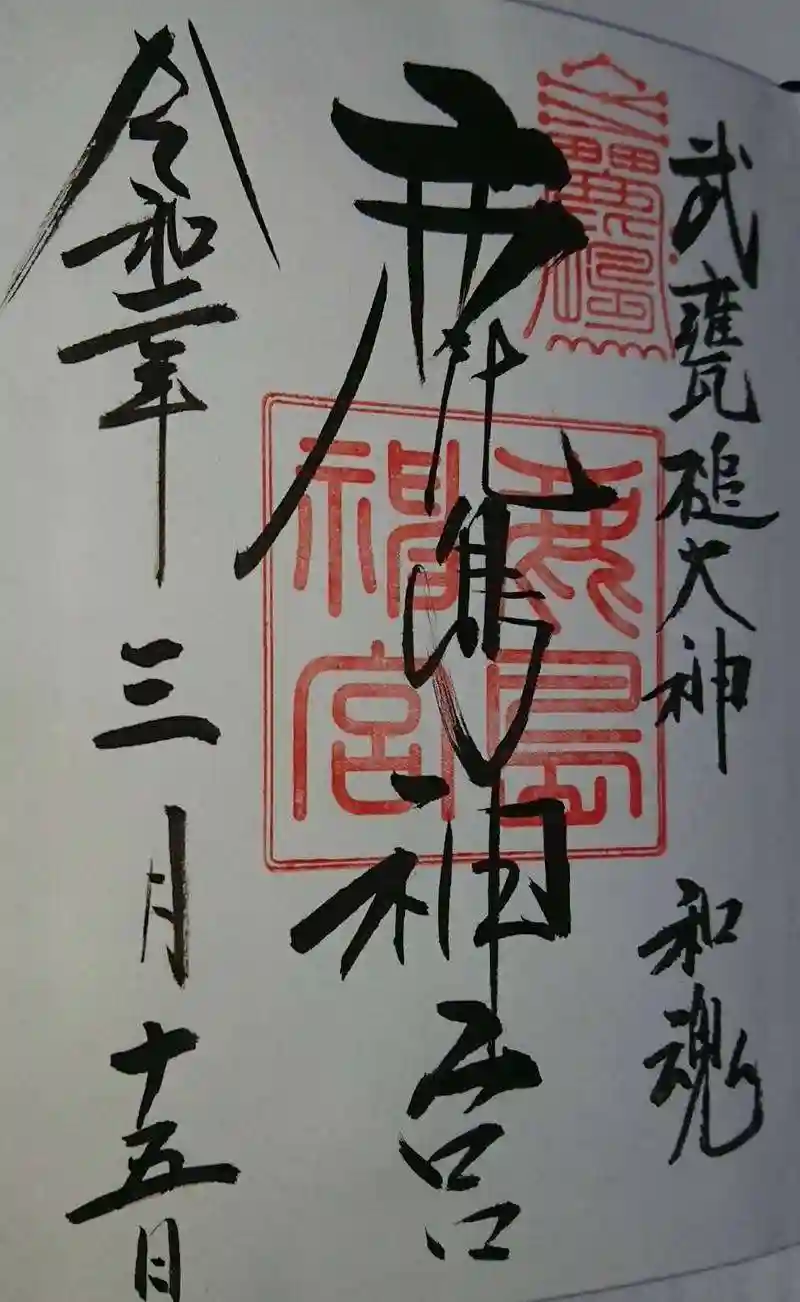 武甕槌大神　和魂
鹿島神宮
鹿島
神宮
令和二年三月十五日